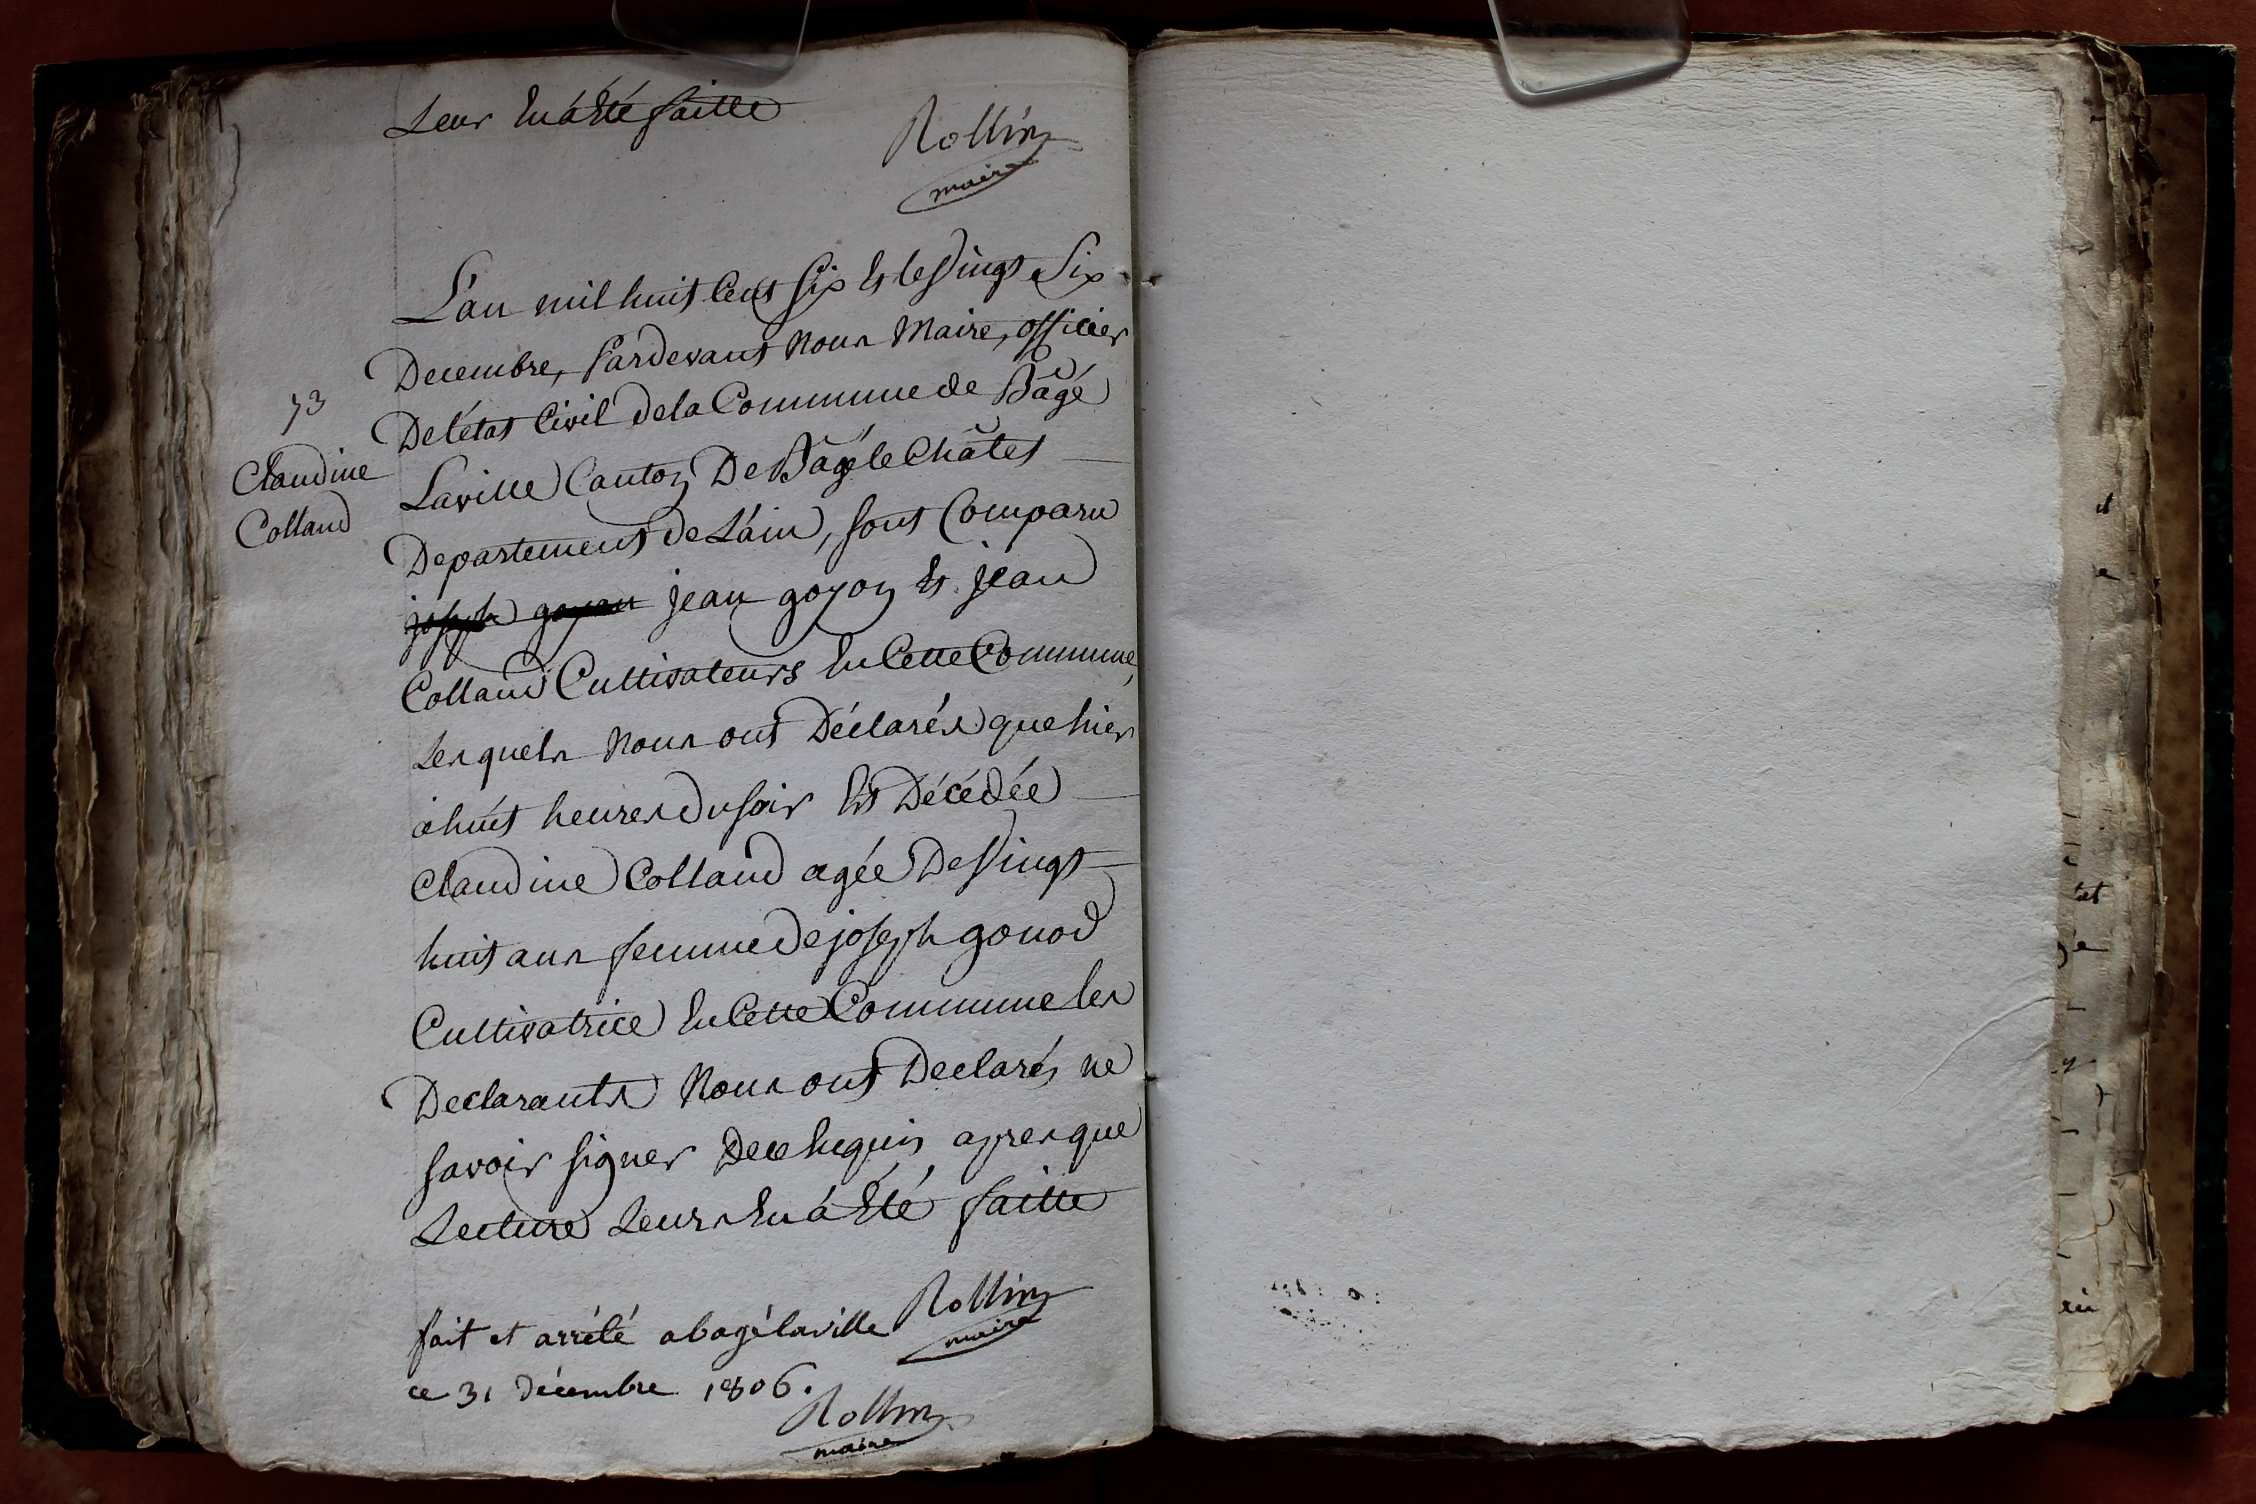 Leur En á Eté faitte
Rollin
maire
73
Claudine
Colland
L'an mil huit Cent Six Et le Vingt Six
Decembre, Pardevant Nous Maire, officier
De l'état Civil de la Commune de Bâgé
Laville Canton De Bâgé le Châtel
Departement de L'ain, sont Comparu
joseph goyon jean goyon Et jean
Colland Cultivateurs En Cette Commune,
Lesquels Nous ont Déclarés que hier
à huit heures du soir Est Décédée
Claudine Colland agée De Vingt
huit ans femme de joseph gonod
Cultivatrice En Cette Commune les
Declarants Nous ont Declarés ne
savoir signer De ce Enquis, apres que
Lecture Leurs En á Eté faitte
Rollin
maire
fait et arrété a bagé laville
ce 31 décembre 1806.
Rollin
maire